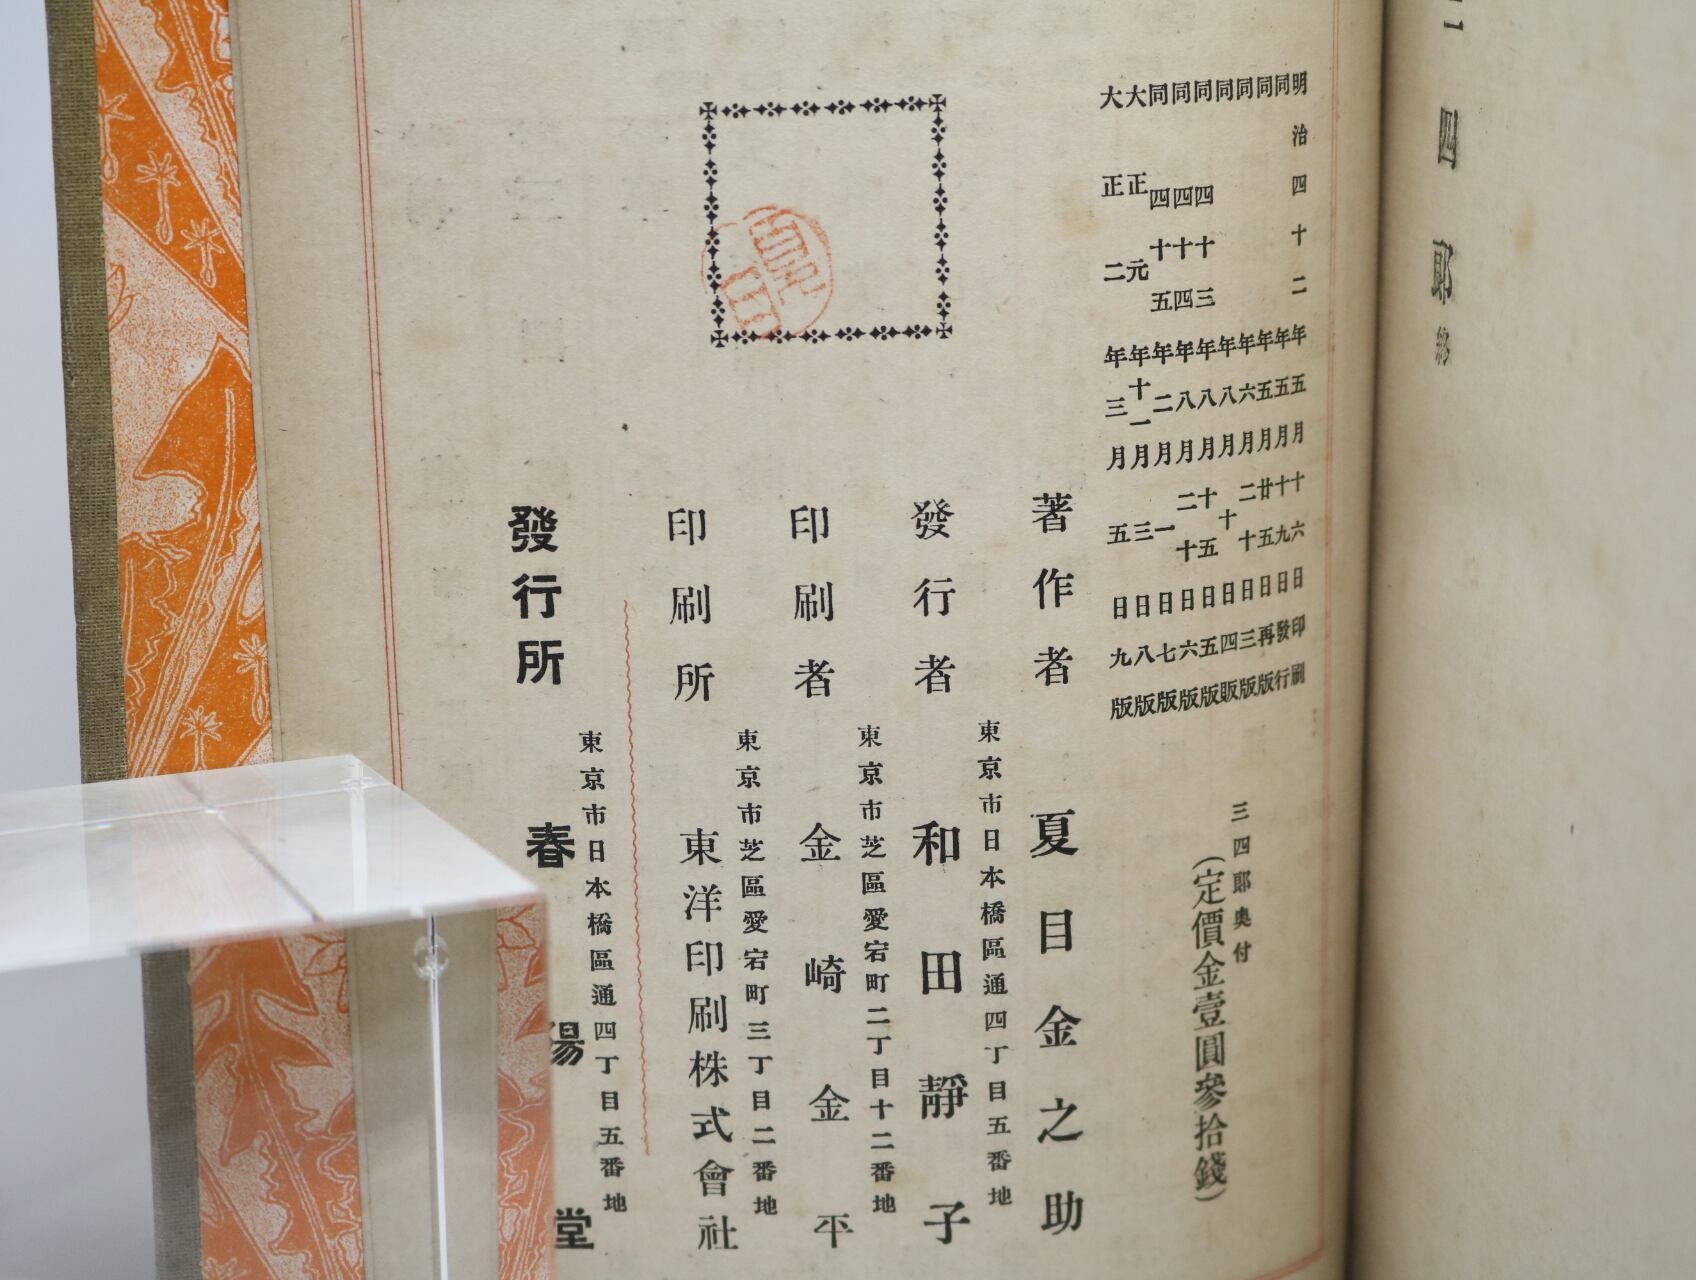 四郎終
明治四十二年五月十六日印刷
同年五月十九日發行
同年五月廿五日再版
同年六月二十日三版
同年八月十日四販
同四十三年八月十五日五版
同四十四年八月二十日六版
同四十五年二月一日七版
大正元年十一月三日八版
大正二年三月五日九版
三四郎奧付
(定價金壹圓參拾錢)
著作者 夏目金之助
東京市日本橋區通四丁目五番地
發行者 和田靜子
東京市芝區愛宕町二丁目十二番地
印刷者 金崎金平
東京市芝區愛宕町三丁目二番地
印刷所 東洋印刷株式會社
東京市日本橋區通四丁目五番地
發行所 春陽堂